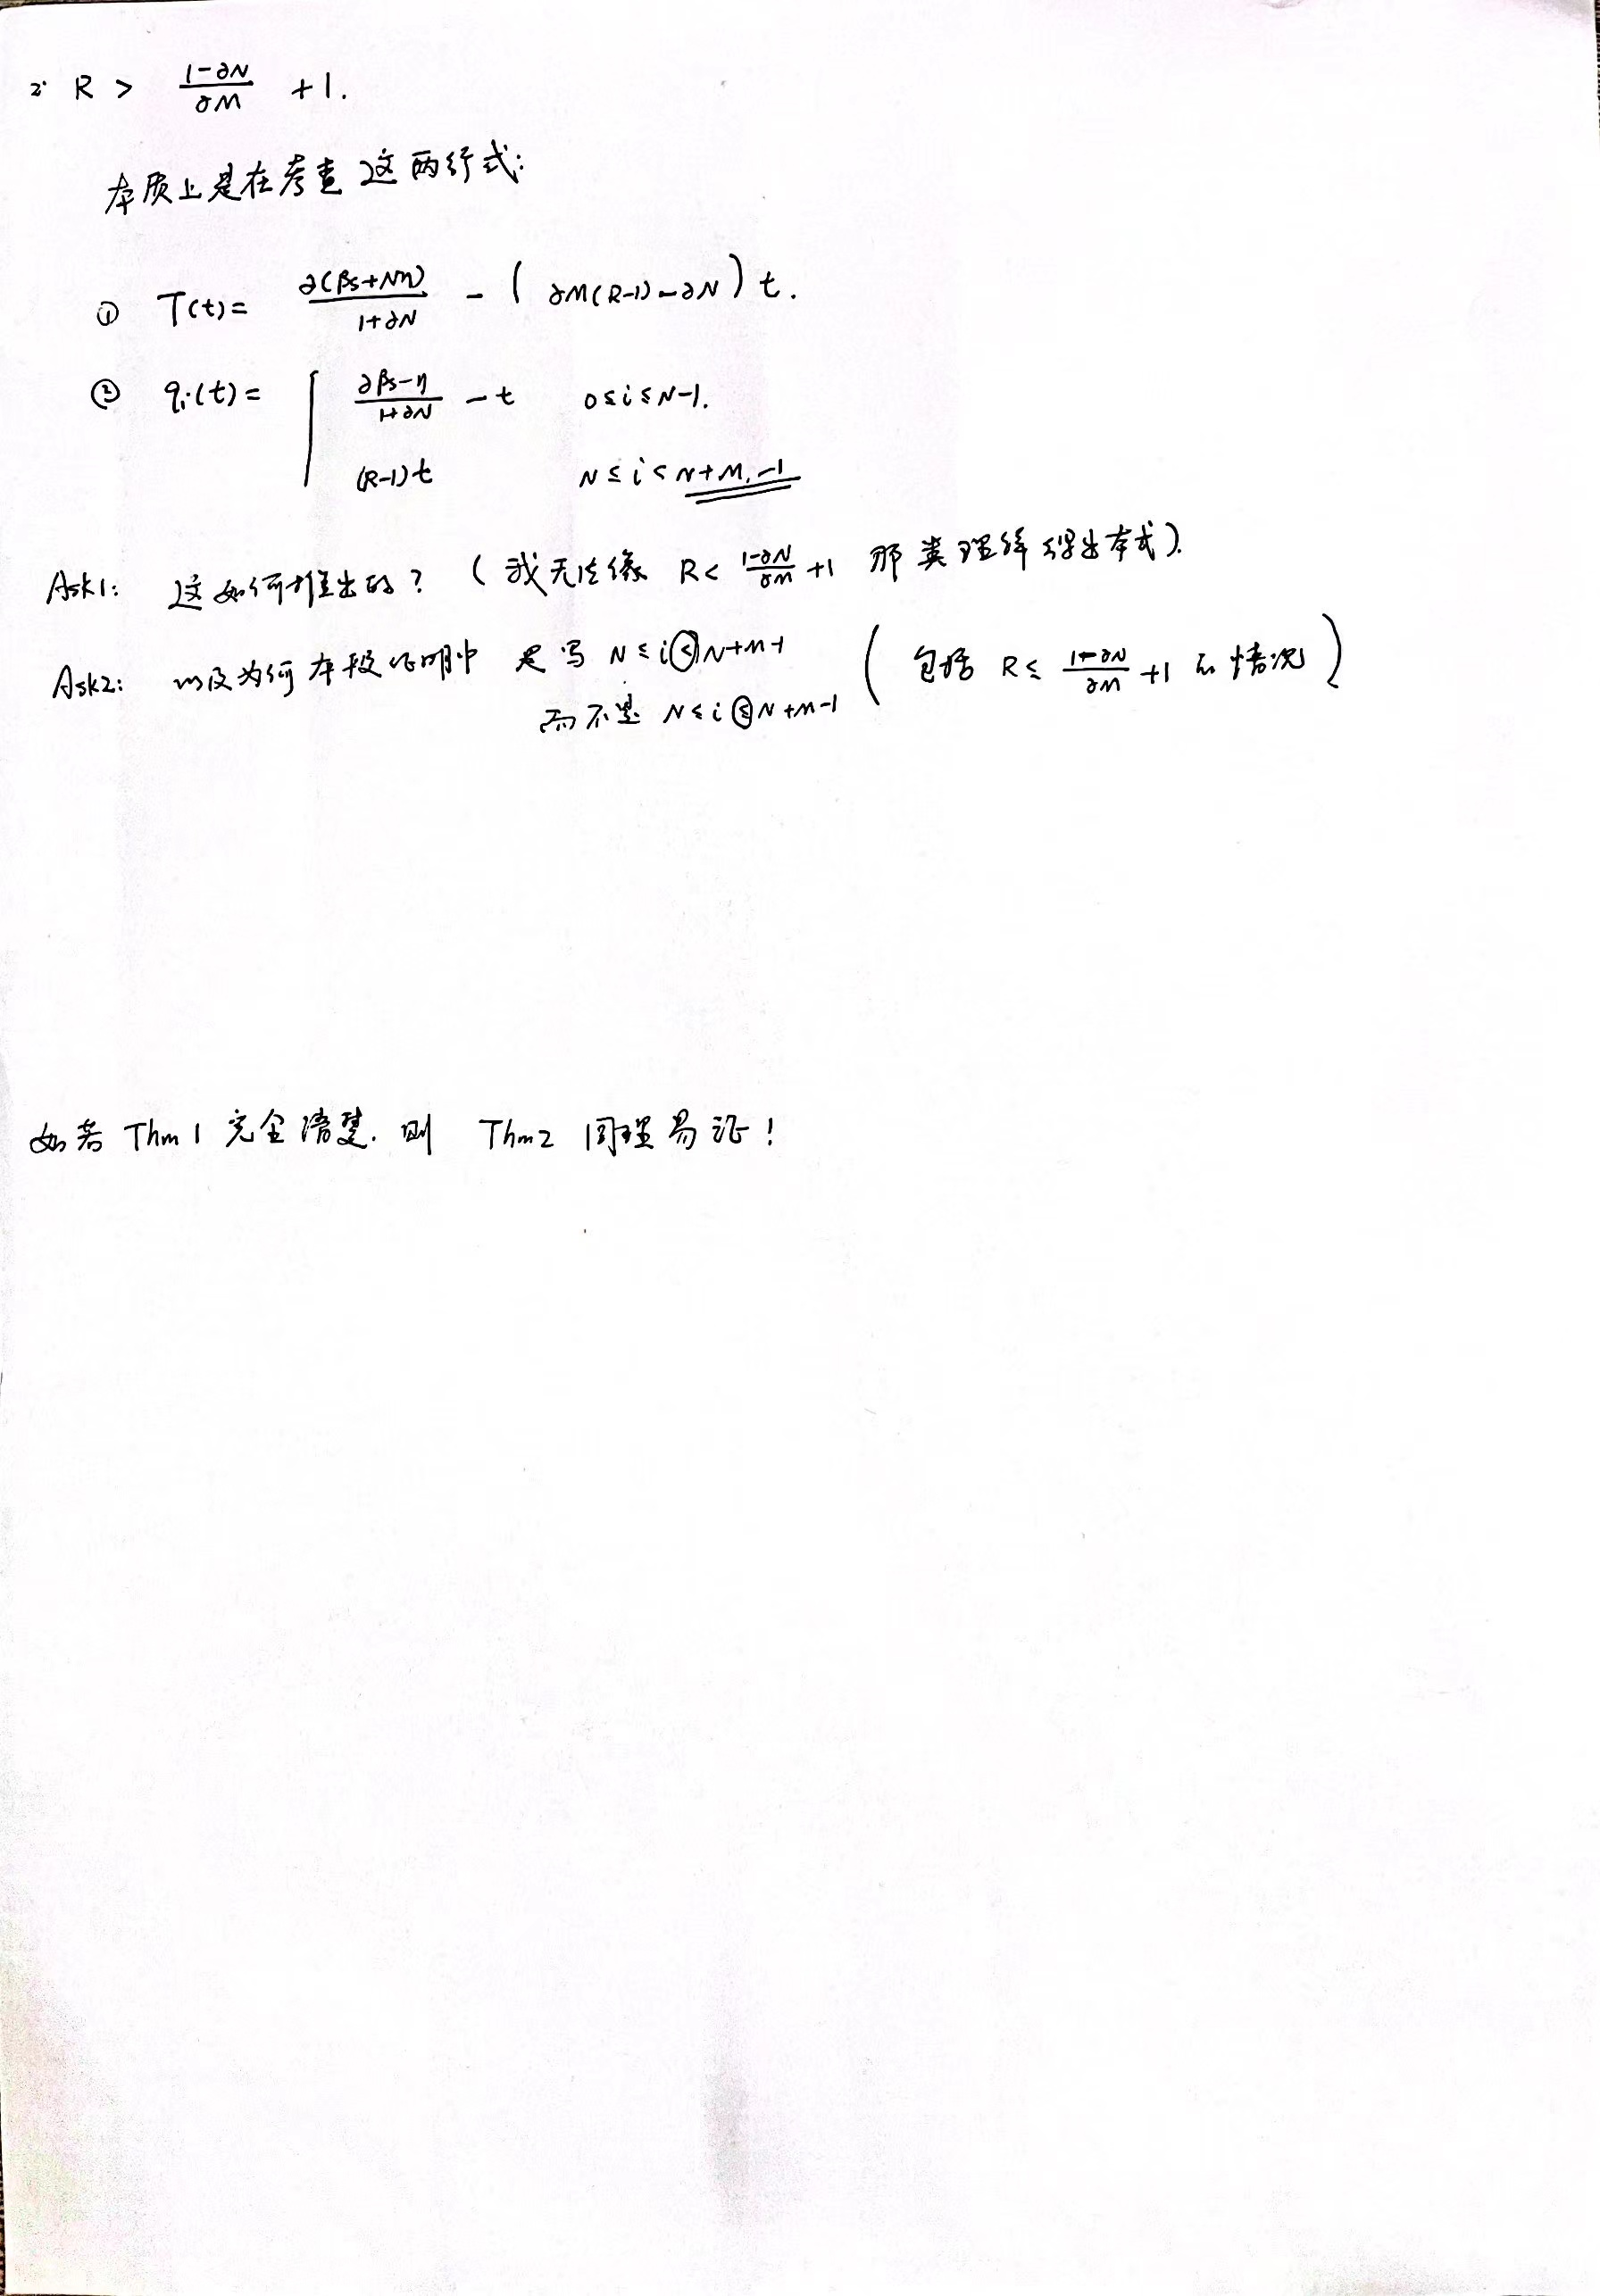 2° R > (1-∂N)/(∂M) +1.
本质上是在考查这两行式:
① T(t)= ∂(βs+Nη)/(1+∂N) - (∂M(R-1)-∂N)t.
② qᵢ(t)= { (∂βs-η)/(1+∂N) -t 0≤i≤N-1.
(R-1)t N≤i<N+M-1
Ask1: 这如何推出的? (我无法像 R< (1-∂N)/(∂M) +1 那类理解得出本式).
Ask2: 以及为何本段证明中是写 N≤i<N+M-1 (包括 R≤ (1-∂N)/(∂M) +1 的情况)
而不是 N≤i≤N+M-1
如若 Thm1 完全清楚. 则 Thm2 同理易证!